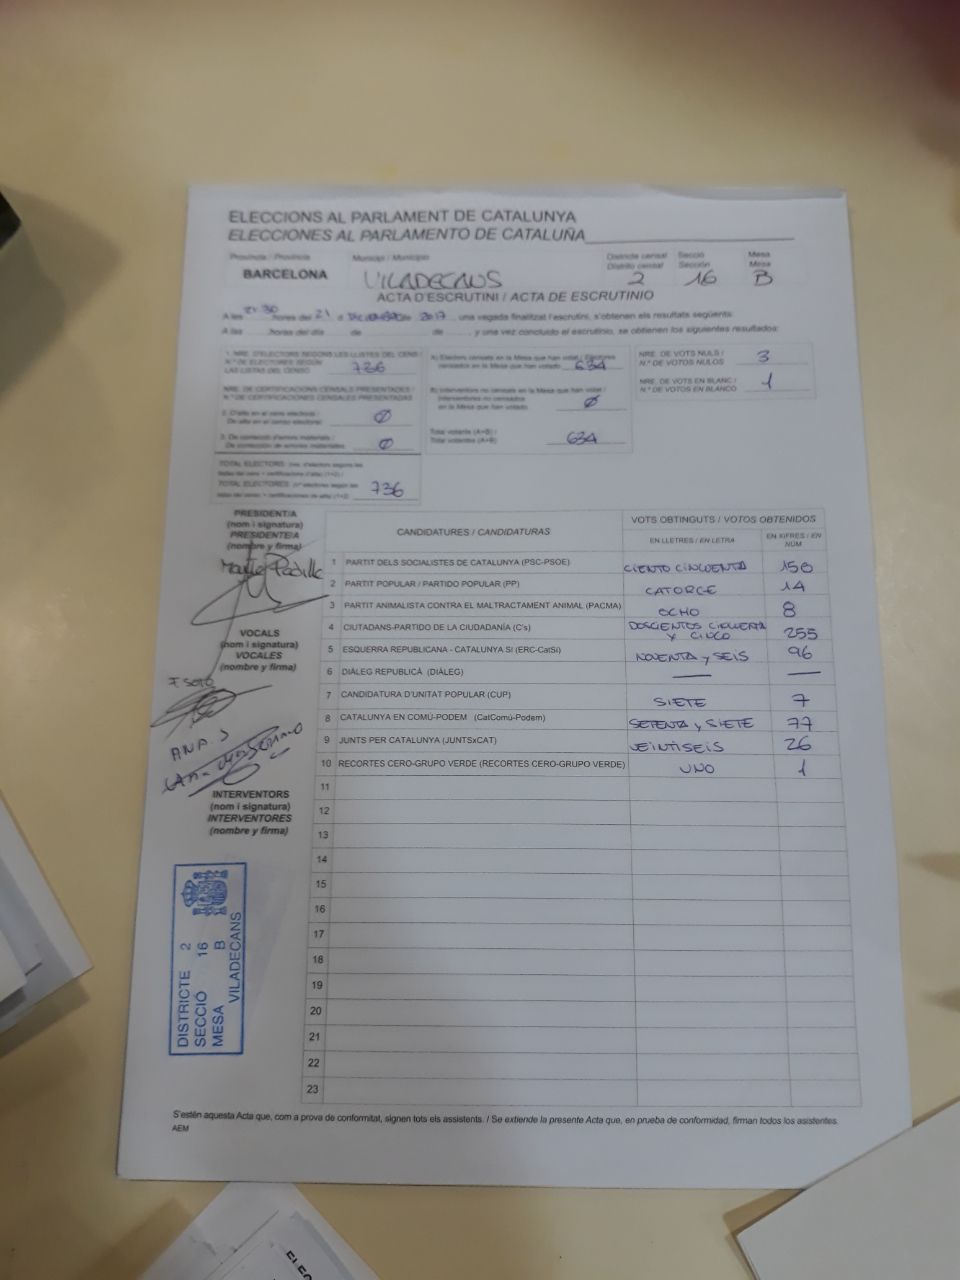 ELECCIONS AL PARLAMENT DE CATALUNYA
ELECCIONES AL PARLAMENTO DE CATALUÑA
Provincia / Provincia Municipi / Municipio Districte censal Secció Mesa
Distrito censal Sección Mesa
BARCELONA VILADECANS 2 16 B
ACTA D'ESCRUTINI / ACTA DE ESCRUTINIO
A les 21:30 hores del 21 d DICIEMBRE de 2017, una vegada finalitzat l'escrutini, s'obtenen els resultats següents:
A las hores del día de de , y una vez concluido el escrutinio, se obtienen los siguientes resultados:
1. NRE. D'ELECTORS SEGONS LES LLISTES DEL CENS /
N.º DE ELECTORES SEGÚN
LAS LISTAS DEL CENSO 736
NRE. DE CERTIFICACIONS CENSALS PRESENTADES /
N.º DE CERTIFICACIONES CENSALES PRESENTADAS
2. D'alta en el cens electoral /
De alta en el censo electoral Ø
3. De correcció d'errors materials /
De corrección de errores materiales Ø
TOTAL ELECTORS: (nre. d'electors segons les
llistes del cens + certificacions d'altes) (1+2) /
TOTAL ELECTORES: (nº electores según las
listas del censo + certificaciones de alta) (1+2) 736
A) Electors censats en la Mesa que han votat / Electores
censados en la Mesa que han votado 634
B) Interventors no censats en la Mesa que han votat /
Interventores no censados
en la Mesa que han votado Ø
Total votants (A+B) /
Total votantes (A+B) 634
NRE. DE VOTS NULS /
N.º DE VOTOS NULOS 3
NRE. DE VOTS EN BLANC /
N.º DE VOTOS EN BLANCO 1
PRESIDENT/A
(nom i signatura)
PRESIDENTE/A
(nombre y firma)
Padilla
VOCALS
(nom i signatura)
VOCALES
(nombre y firma)
F SOTO
ANA. S
INTERVENTORS
(nom i signatura)
INTERVENTORES
(nombre y firma)
CANDIDATURES / CANDIDATURAS VOTS OBTINGUTS / VOTOS OBTENIDOS
EN LLETRES / EN LETRA EN XIFRES / EN NÚM
1 PARTIT DELS SOCIALISTES DE CATALUNYA (PSC-PSOE) CIENTO CINCUENTA 150
2 PARTIT POPULAR / PARTIDO POPULAR (PP) CATORCE 14
3 PARTIT ANIMALISTA CONTRA EL MALTRACTAMENT ANIMAL (PACMA) OCHO 8
4 CIUTADANS-PARTIDO DE LA CIUDADANÍA (C's) DOSCIENTOS CINCUENTA Y CINCO 255
5 ESQUERRA REPUBLICANA - CATALUNYA SÍ (ERC-CatSí) NOVENTA y SEIS 96
6 DIÀLEG REPUBLICÀ (DIÀLEG) — —
7 CANDIDATURA D'UNITAT POPULAR (CUP) SIETE 7
8 CATALUNYA EN COMÚ-PODEM (CatComú-Podem) SETENTA y SIETE 77
9 JUNTS PER CATALUNYA (JUNTSxCAT) VEINTISEIS 26
10 RECORTES CERO-GRUPO VERDE (RECORTES CERO-GRUPO VERDE) UNO 1
11
12
13
14
15
16
17
18
19
20
21
22
23
DISTRICTE 2
SECCIÓ 16
MESA B
VILADECANS
S'estén aquesta Acta que, com a prova de conformitat, signen tots els assistents. / Se extiende la presente Acta que, en prueba de conformidad, firman todos los asistentes.
AEM